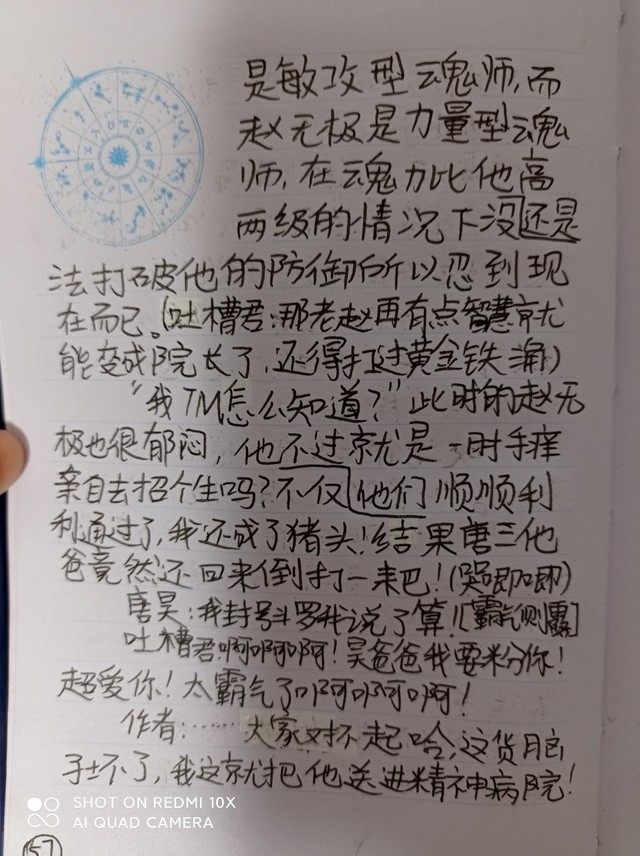 是敏攻型魂师，而
赵无极是力量型魂
师，在魂力比他高
两级的情况下没还是
法打破他的防御所以忍到现
在而已。(吐槽君：那老赵再有点智慧就
能变成院长了，还得打过黄金铁
“我TM怎么知道？”此时的赵无
极也很郁闷，他不过就是一时手痒
亲自去招个生吗？不仅他们顺顺利
利通过了，我还成了猪头！结果唐三他
爸竟然还回来倒打一耒巴！(哭唧唧)
唐昊：我封号斗罗我说了算！[霸气侧露]
吐槽君：啊啊啊！昊爸爸我要粉你！
超爱你！太霸气了啊啊啊！
作者：……大家对不起哈，这货脑
子坏了，我这就把他送进精神病院！
SHOT ON REDMI 10X
AI QUAD CAMERA
57